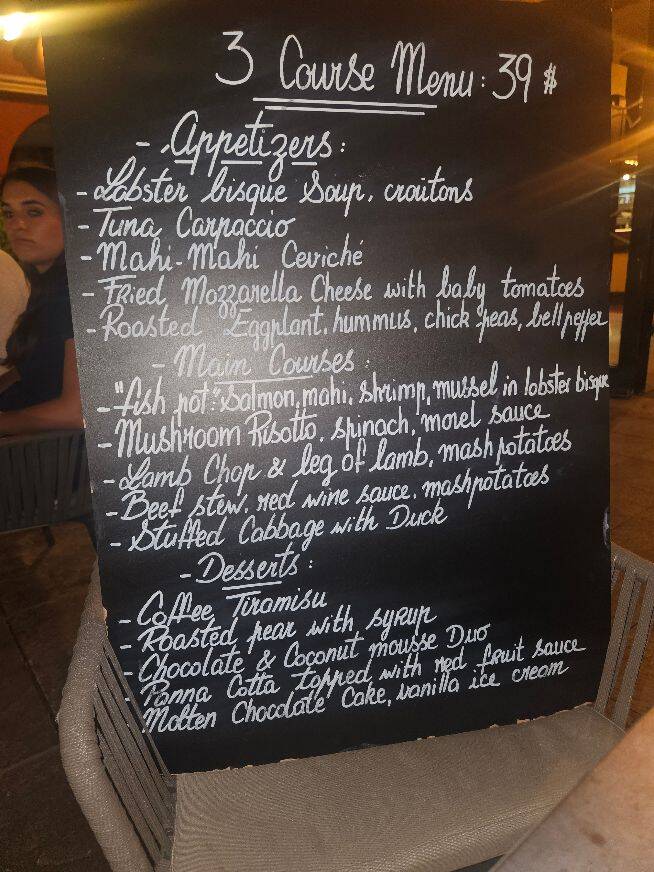 3 Course Menu: 39 $
- Appetizers:
- Lobster bisque Soup, croutons
- Tuna Carpaccio
- Mahi-Mahi Ceviché
- Fried Mozzarella Cheese with baby tomatoes
- Roasted Eggplant, hummus, chick peas, bell pepper
- Main Courses:
- "fish pot": Salmon, mahi, shrimp, mussel in lobster bisque
- Mushroom Risotto, spinach, morel sauce
- Lamb Chop & leg of lamb, mash potatoes
- Beef stew, red wine sauce, mashpotatoes
- Stuffed Cabbage with Duck
- Desserts:
- Coffee Tiramisu
- Roasted pear with syrup
- Chocolate & Coconut mousse Duo
- Panna Cotta topped with red fruit sauce
- Molten Chocolate Cake, vanilla ice cream